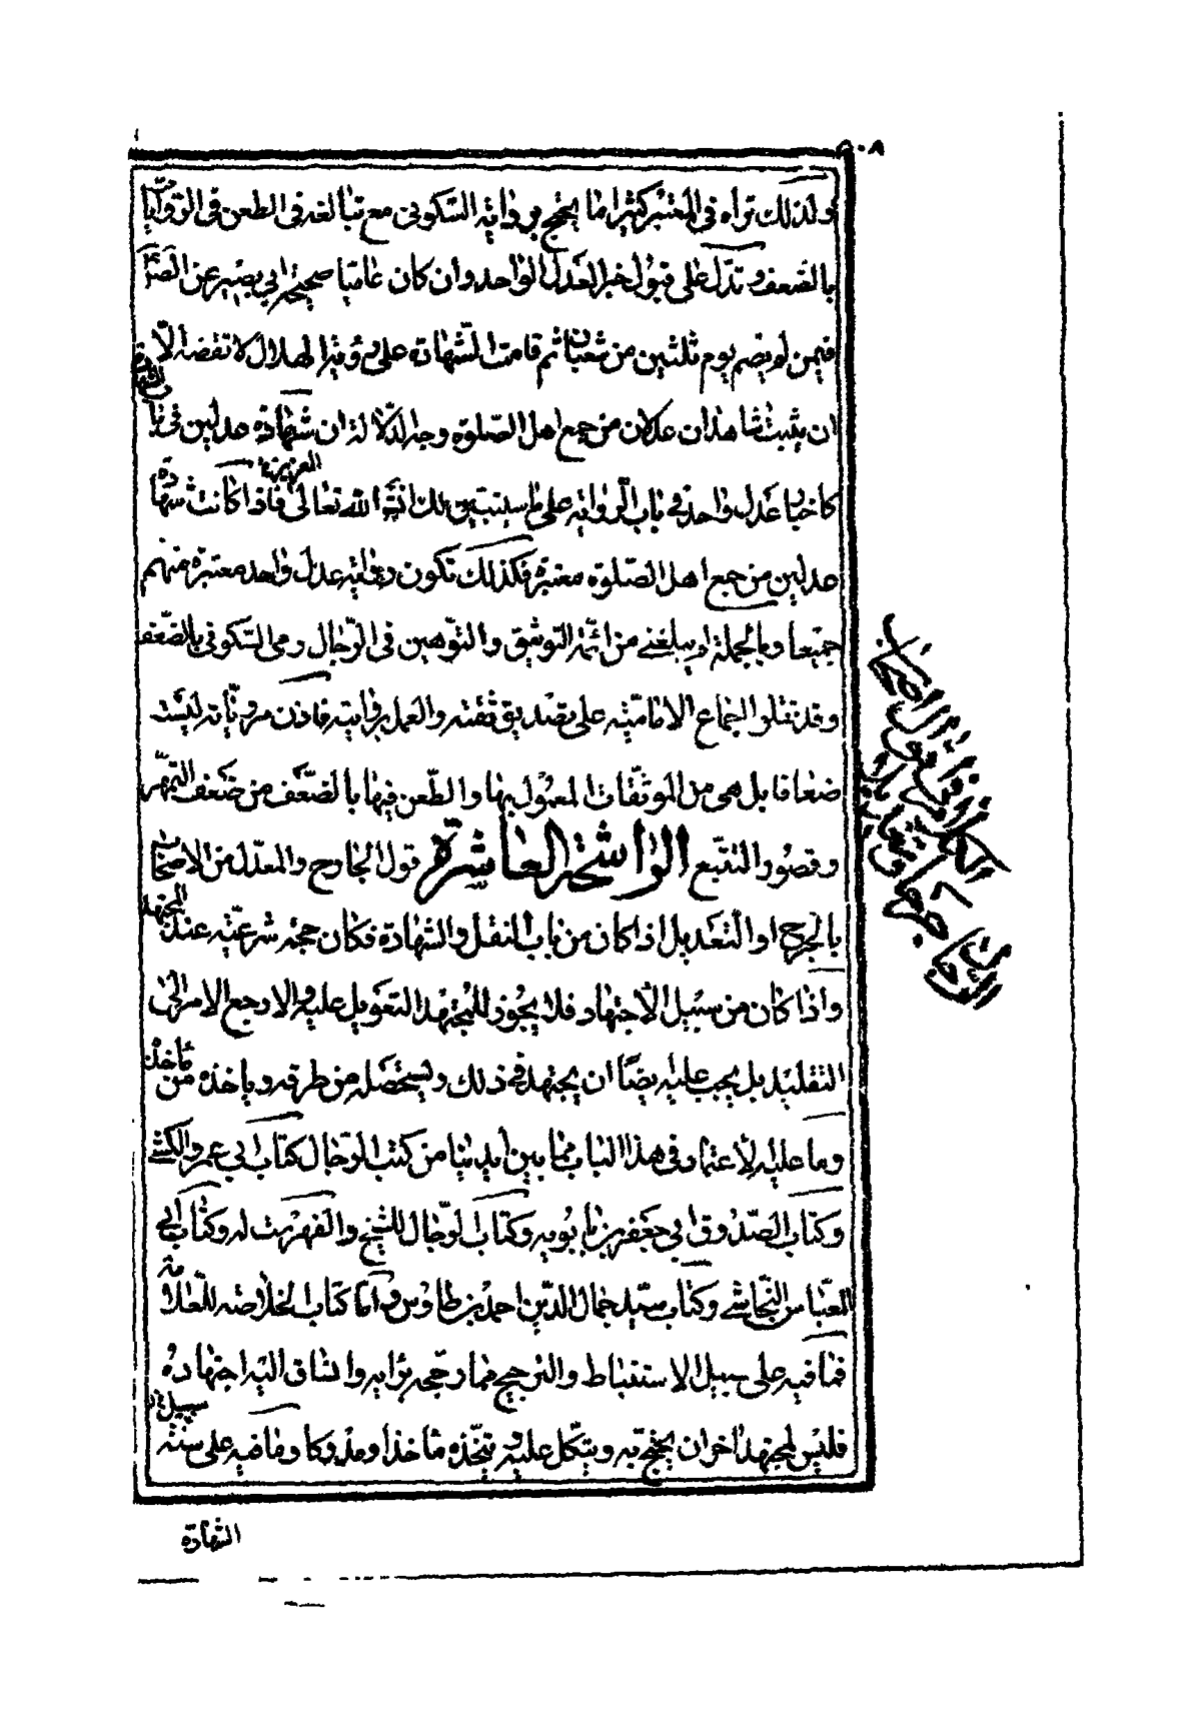 ولذلك تراه في المعتبر كثيرا ما يحتج برواية السكوني مع تبالغه في الطعن في الروايات
بالضعف وتدل على قبول خبر العدل الواحد وان كان عاميا صحيحة ابي بصير عن الصادق
فيمن لم يصم يوم ثلثين من شعبان ثم قامت الشهادة على رؤية الهلال لا تقضه الا
ان يثبت شاهدان عدلان من جميع اهل الصلوة وجه الدلالة ان شهادة عدلين في باب الشهادة
كاخبار عدل واحد في باب الرواية على ما سيتبين لك انشاء الله تعالى العزيز فاذا كانت شهادة
عدلين من جميع اهل الصلوة معتبرة فكذلك تكون رواية عدل واحد معتبرة منهم
جميعا وبالجملة لم يبلغني من ائمة التوثيق والتوهين في الرجال رمى السكوني بالضعف
وقد نقلوا اجماع الامامية على تصديق ثقته والعمل بروايته فاذن مروياته ليست
ضعافا بل هي من الموثقات المعمول بها والطعن فيها بالضعف من ضعف التمهر
وقصور التتبع الراشحة العاشرة قول الجارح والمعدل من الاصحاب
بالجرح او التعديل اذا كان من باب النقل والشهادة فكان حجة شرعية عند المجتهد
واذا كان من سبيل الاجتهاد فلا يجوز للمجتهد التعويل عليه والا رجع الامر الى
التقليد بل يجب عليه ايضا ان يجتهد في ذلك ويستحصله من طرقه وياخذه من مأخذه
وما عليه الاعتماد في هذا الباب مما بين ايدينا من كتب الرجال كتاب ابي عمرو الكشي
وكتاب الصدوق ابي جعفر بن بابويه وكتاب الرجال للشيخ والفهرست له وكتاب ابي
العباس النجاشي وكتاب سيد جمال الدين احمد بن طاوس واما كتاب الخلاصة للعلامة
فما فيه على سبيل الاستنباط والترجيح فما رجحه برايه وانساق اليه اجتهاده
فليس لمجتهد اخر ان يحتج به ويتكل عليه ويتخذه مأخذا ومدركا وما فيه على سنة سبيل
الشهادة